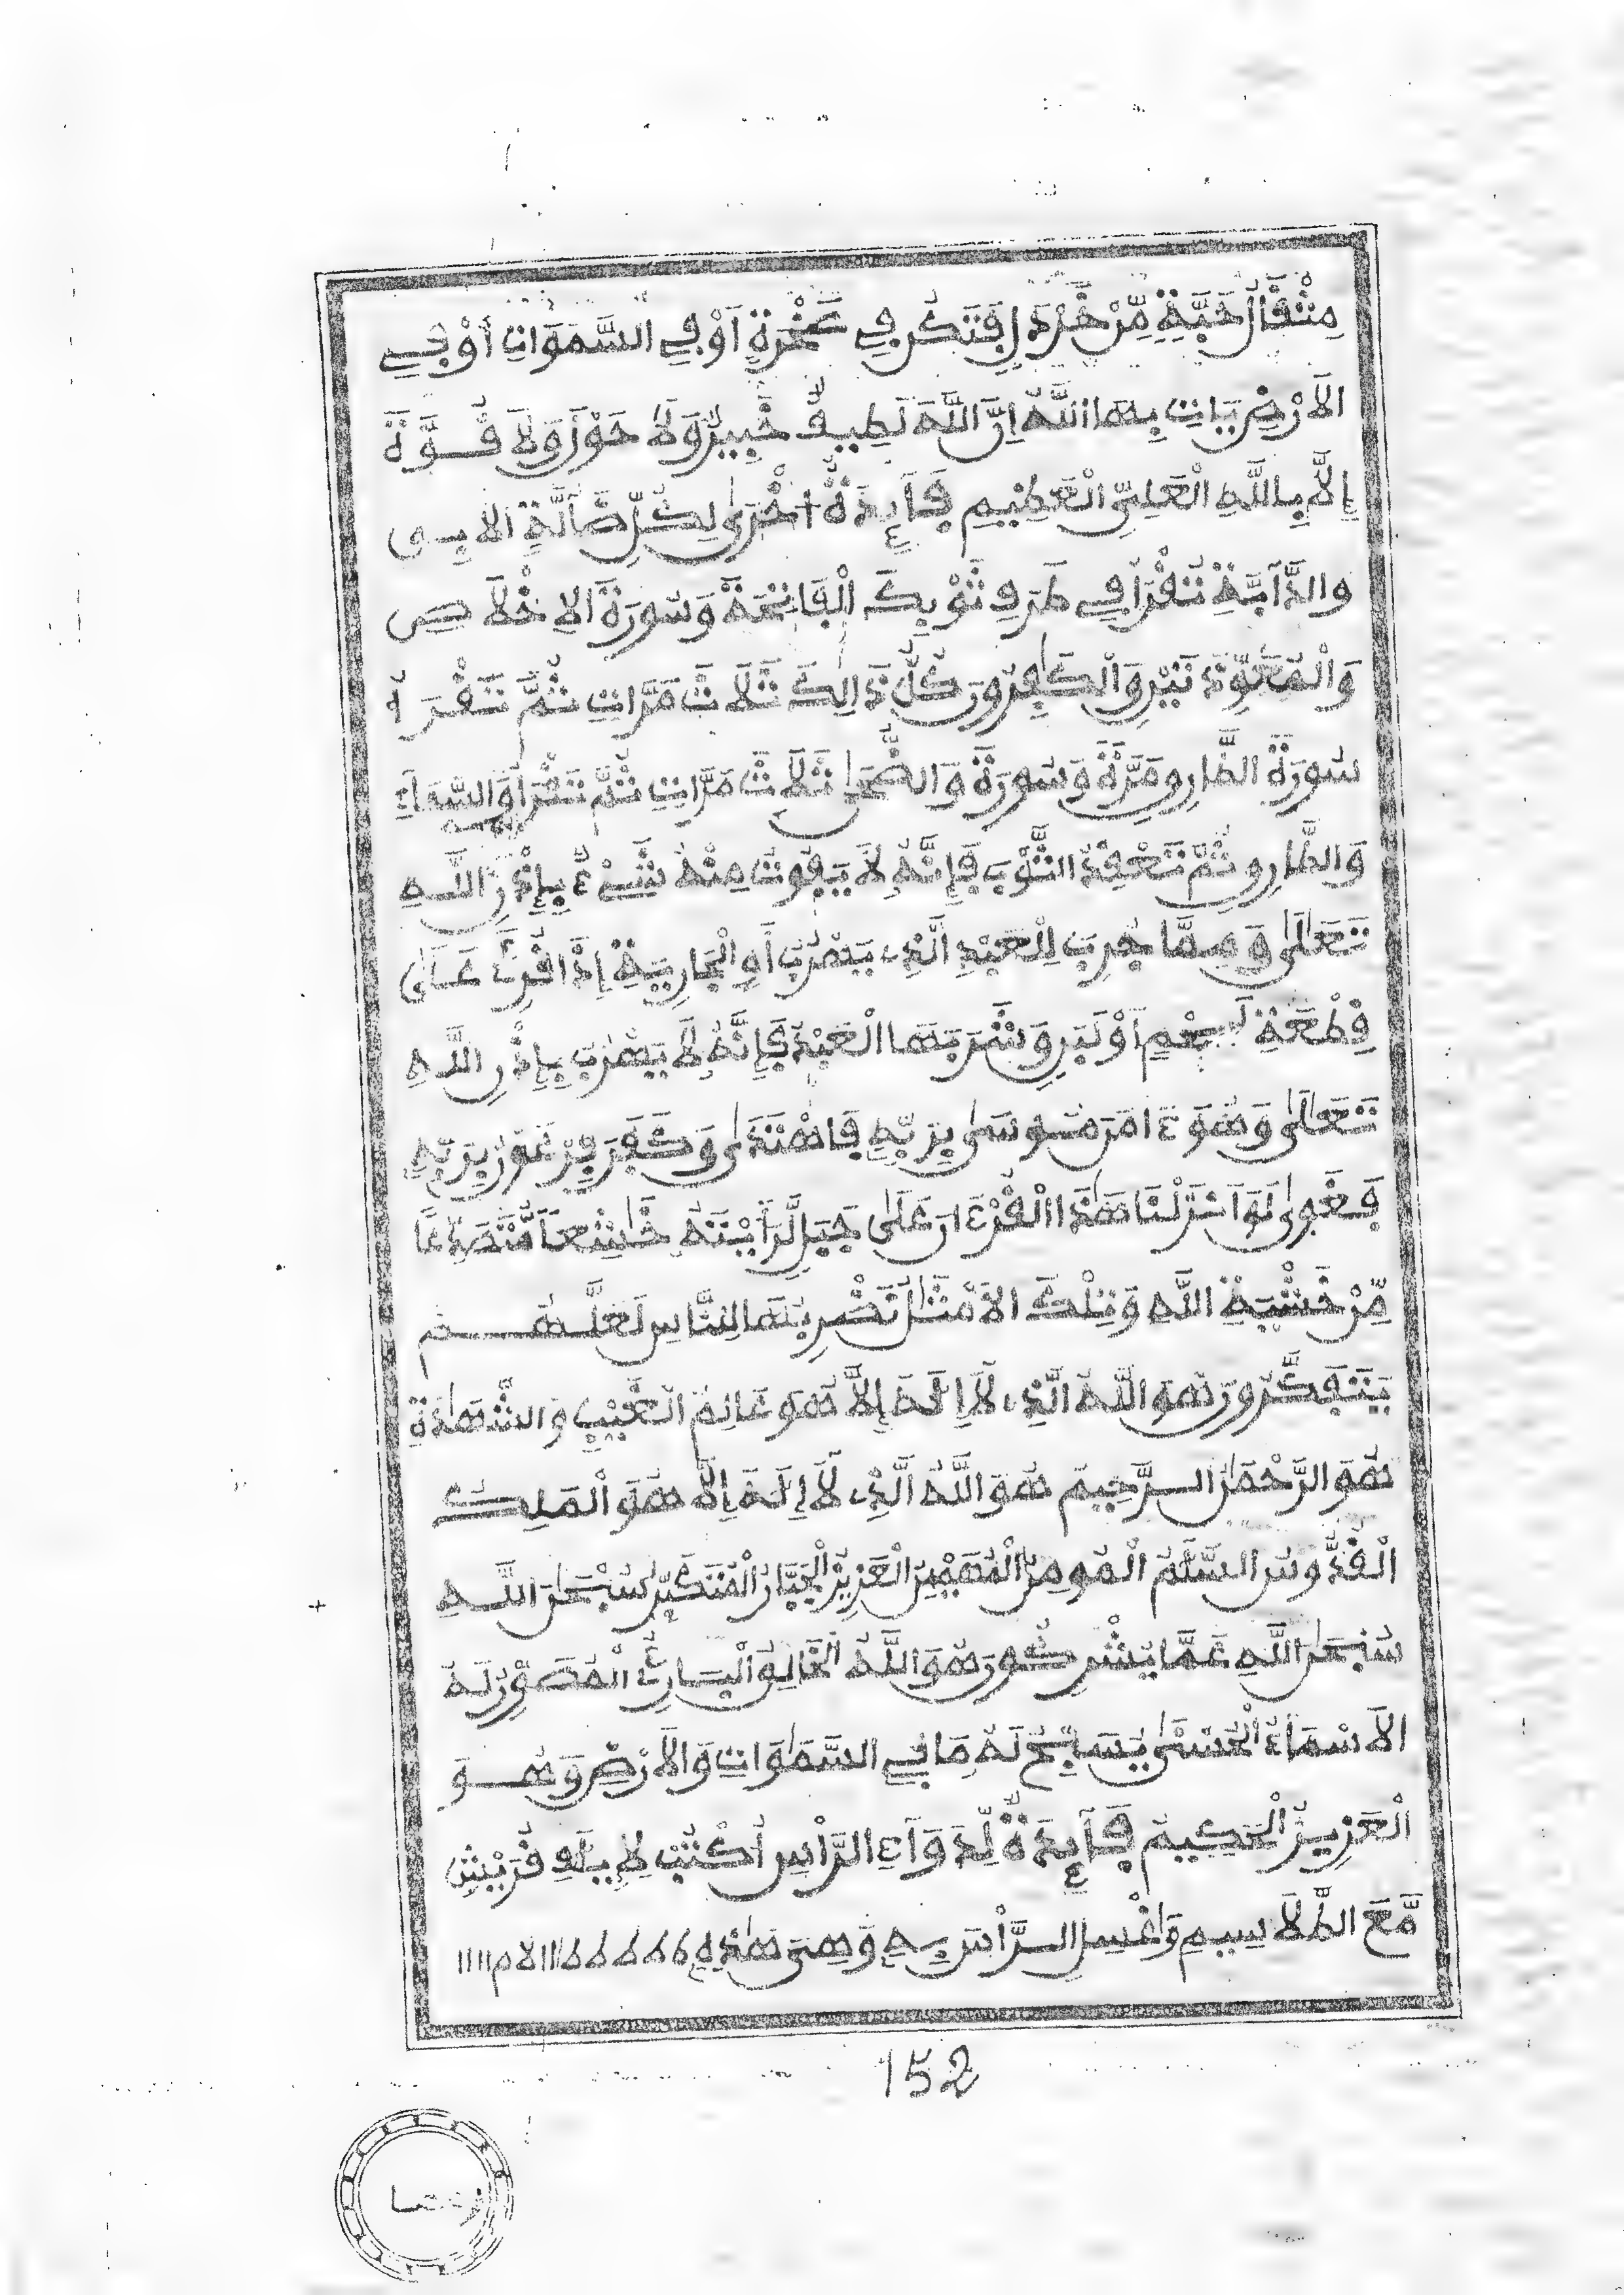 مِثْقَالَ حَبَّةٍ مِّنْ خَرْدَلٍ فَتَكُن فِي صَخْرَةٍ اَوْ فِي السَّمَوَاتِ أَوْ فِي
الاَرْضِ يَاتِ بِهَا اللَّهُ إِنَّ اللَّهَ لَطِيفٌ خَبِيرٌ وَلاَ حَوْلَ وَلاَ قُوَّةَ
إِلاَّ بِاللَّهِ الْعَلِيِّ الْعَظِيمِ فَآيِدَةٌ اخْرَىٰ لِكُلِّ ضَآلَّةٍ الاٰبِى
والدَّآبَّةِ تَقْرَأُ فِي طَرَفِ ثَوْبِكَ الْفَاتِحَةَ وَسُورَةَ الاِخْلاَصِ
وَالْمُعَوِّذَتَيْنِ وَالْكَٰفِرُونَ كُلُّ ذَالِكَ ثَلاَثَ مَرَّاتٍ ثُمَّ تَقْرَأُ
سُورَةَ الطَّارِقِ مَرَّةً وَسُورَةَ وَالضُّحَىٰ ثَلاَثَ مَرَّاتٍ ثُمَّ تَقْرَأُ وَالسَّمَآءِ
وَالطَّارِقِ ثُمَّ تَعْقِدُ الثَّوْبَ فَإِنَّهُ لاَ يَفُوتُ مِنْهُ شَيْءٌ بِإِذْنِ اللَّهِ
تَعَالَىٰ وَمِمَّا جُرِبَ لِلْعَبْدِ الَّذِي يَهْرُبُ أَوِ الْجَارِيَةِ إِذَا قُرِئَ عَلَىٰ
قِطْعَةِ لَحْمٍ اَوْ لَبَنٍ وَشَرِبَهَا الْعَبْدُ فَإِنَّهُ لاَ يَهْرُبُ بِإِذْنِ اللَّهِ
تَعَالَىٰ وَهُوَ ءَامَنَ مُوسَىٰ بِرَبِّهِ فَاهْتَدَىٰ وَكَفَرَ فِرْعَوْنُ بِرَبِّهِ
فَغَوِىٰ لَوَ اَنزَلْنَا هَٰذَا الْقُرْءَانَ عَلَىٰ جَبَلٍ لَّرَأَيْتَهُ خَٰشِعاً مُّتَصَدِّعاً
مِّنْ خَشْيَةِ اللَّهِ وَتِلْكَ الاَمْثَٰلُ نَضْرِبُهَا لِلنَّاسِ لَعَلَّهُم
يَتَفَكَّرُونَ هُوَ اللَّهُ الَّذِي لاَ إِلَٰهَ إِلاَّ هُوَ عَالِمُ الْغَيْبِ وَالشَّهَٰدَةِ
هُوَ الرَّحْمَٰنُ الرَّحِيمُ هُوَ اللَّهُ الَّذِي لاَ إِلَهَ إِلاَّ هُوَ الْمَلِكُ
الْقُدُّوسُ السَّلَٰمُ الْمُومِنُ الْمُهَيْمِنُ الْعَزِيزُ الْجَبَّارُ الْمُتَكَبِّرُ سُبْحَٰنَ اللَّهِ
سُبْحَٰنَ اللَّهِ عَمَّا يُشْرِكُونَ هُوَ اللَّهُ الْخَالِقُ الْبَارِئُ الْمُصَوِّرُ لَهُ
الاَسْمَآءُ الْحُسْنَىٰ يُسَبِّحُ لَهُ مَا فِي السَّمَٰوَاتِ وَالاَرْضِ وَهُوَ
الْعَزِيزُ الْحَكِيمُ فَآيِدَةٌ لِّدَوَآءِ الرَّأْسِ اُكْتُبْ لِإِيلَٰفِ قُرَيْشٍ
مَّعَ الطَّلاَسِيمِ وَاغْسِلِ الرَّأْسَ بِهِ وَهِىَ هَٰذِهِ
152